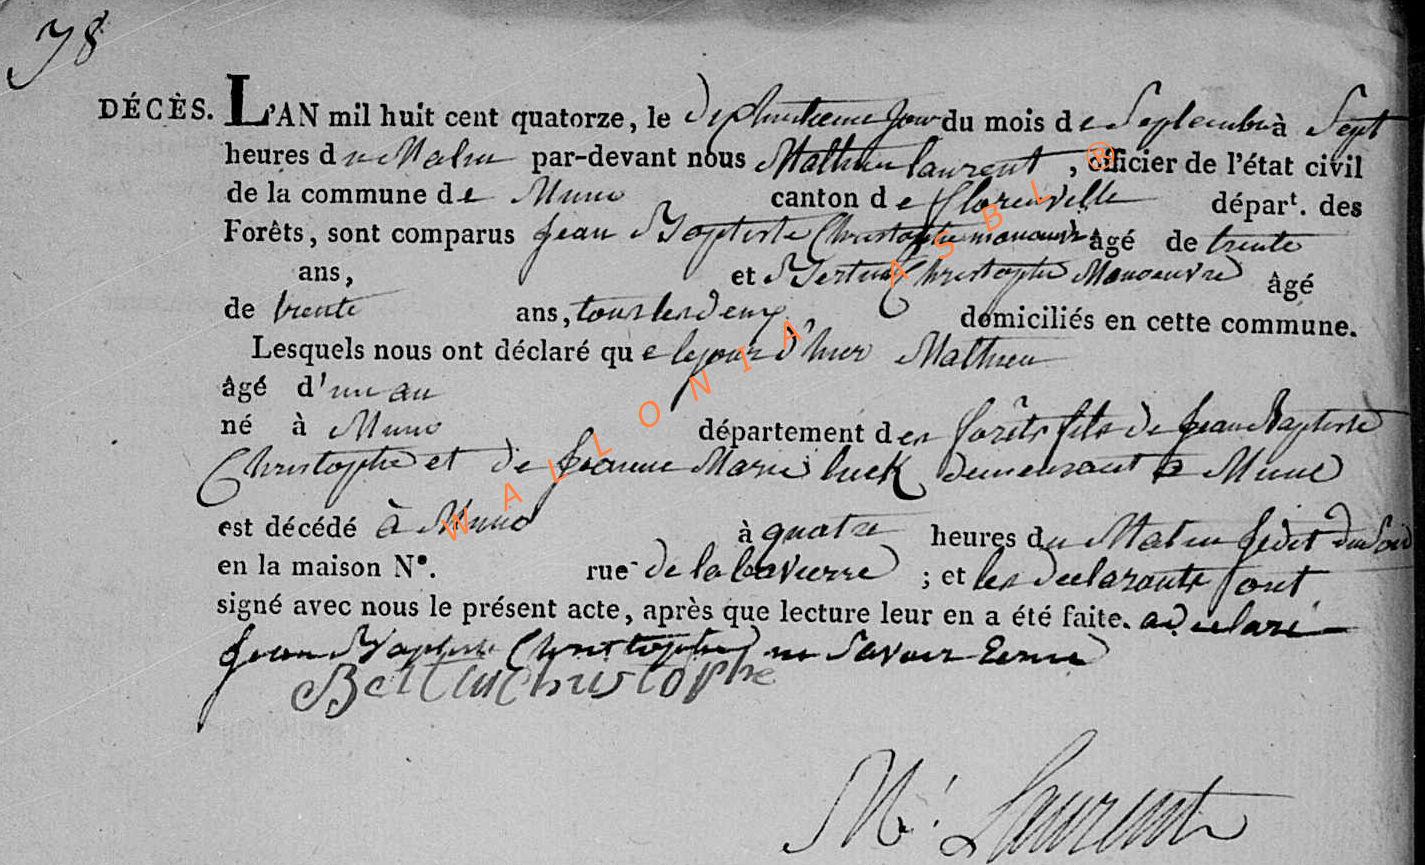 78
DÉCÈS. L'AN mil huit cent quatorze, le dix huitieme jour du mois de Septembre à Sept
heures du Matin par-devant nous Mathieu laurent, officier de l'état civil
de la commune de Muno canton de florenville départ. des
Forêts, sont comparus jean Baptiste Christophe manouvre âgé de trente
ans, et Bertin Christophe Manoeuvre âgé
de trente ans, tous les deux domiciliés en cette commune.
Lesquels nous ont déclaré que le jour d'hier Mathieu
âgé d'un an
né à Muno département des forêts fils de jean Baptiste
Christophe et de jeanne Marie luck demeurant a Muno
est décédé à Muno à quatre heures du Matin
en la maison N°. rue de la baviere ; et les declarants ont
signé avec nous le présent acte, après que lecture leur en a été faite. a declaré
jean Baptiste Christophe ne Savoir Ecrire
Bertin Christophe
Mt. Laurent
WALLONIA ASBL ®